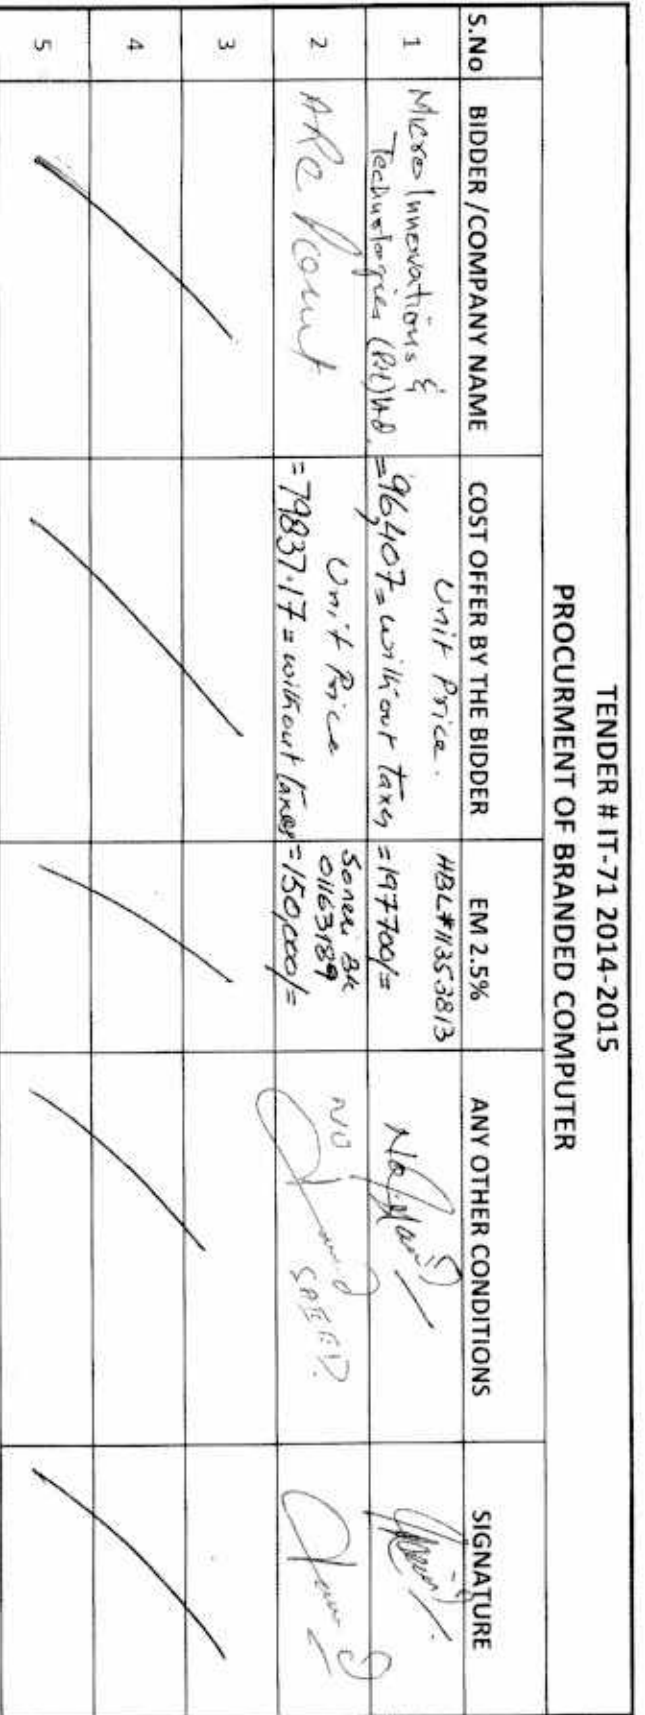 TENDER # IT-71 2014-2015
PROCURMENT OF BRANDED COMPUTER
S.No BIDDER /COMPANY NAME COST OFFER BY THE BIDDER EM 2.5% ANY OTHER CONDITIONS SIGNATURE
1 Micro Innovations & Technologies (Pvt) Ltd. Unit Price. =96,407= without taxes HBL#11353813 =197700/= No.
2 ARC Unit Price =79837.17= without taxes Soneri Bk 01163189 =150,000/= NO SAEED.
3
4
5